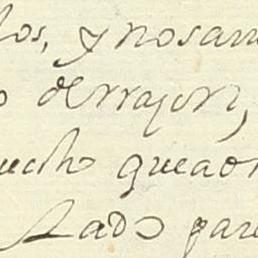 los, y nosam
o derrazon,
ucho quead
stado pare